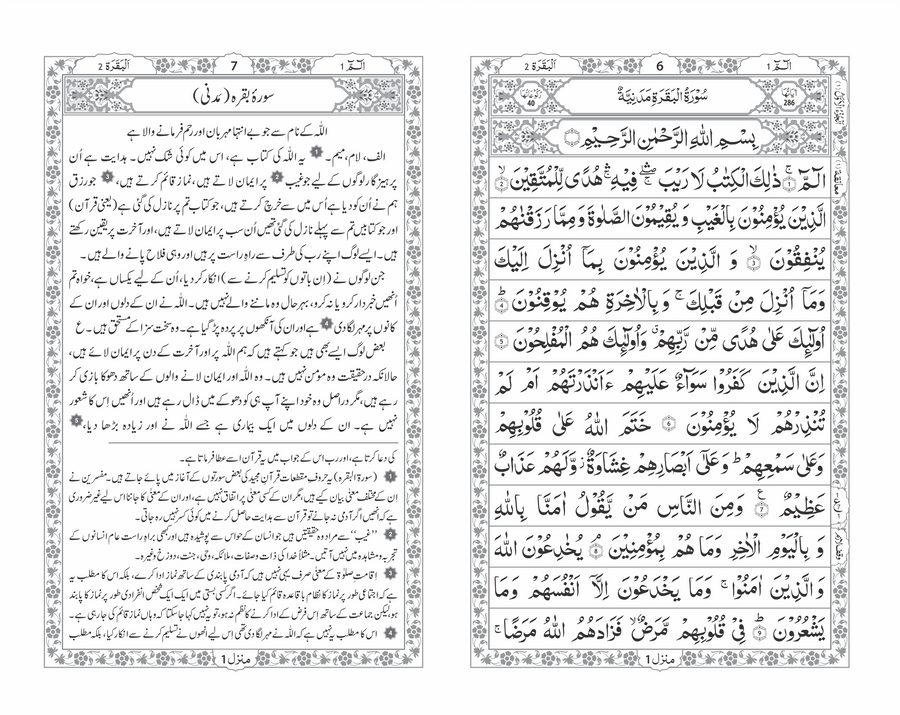 الٓمّٓ 1
6
اَلْبَقَرَة 2
اٰیَاتُهَا 286
سُوْرَةُ الْبَقَرَةِ مَدَنِيَّةٌ
رُكُوْعَاتُهَا 40
بِسْمِ اللهِ الرَّحْمٰنِ الرَّحِيْمِ
الٓمّٓ ۚ ﴿1﴾ ذٰلِكَ الْكِتٰبُ لَا رَيْبَ ۛۖ فِيْهِ ۛۚ هُدًى لِّلْمُتَّقِيْنَ ۙ ﴿2﴾
الَّذِيْنَ يُؤْمِنُوْنَ بِالْغَيْبِ وَ يُقِيْمُوْنَ الصَّلٰوةَ وَ مِمَّا رَزَقْنٰهُمْ
يُنْفِقُوْنَ ۙ ﴿3﴾ وَ الَّذِيْنَ يُؤْمِنُوْنَ بِمَاۤ اُنْزِلَ اِلَيْكَ
وَ مَاۤ اُنْزِلَ مِنْ قَبْلِكَ ۚ وَ بِالْاٰخِرَةِ هُمْ يُوْقِنُوْنَ ؕ ﴿4﴾
اُولٰٓئِكَ عَلٰى هُدًى مِّنْ رَّبِّهِمْ ۗ وَ اُولٰٓئِكَ هُمُ الْمُفْلِحُوْنَ ﴿5﴾
اِنَّ الَّذِيْنَ كَفَرُوْا سَوَآءٌ عَلَيْهِمْ ءَاَنْذَرْتَهُمْ اَمْ لَمْ
تُنْذِرْهُمْ لَا يُؤْمِنُوْنَ ﴿6﴾ خَتَمَ اللهُ عَلٰى قُلُوْبِهِمْ
وَ عَلٰى سَمْعِهِمْ ؕ وَ عَلٰۤى اَبْصَارِهِمْ غِشَاوَةٌ ؗ وَّ لَهُمْ عَذَابٌ
عَظِيْمٌ ﴿7﴾ ع وَ مِنَ النَّاسِ مَنْ يَّقُوْلُ اٰمَنَّا بِاللهِ
وَ بِالْيَوْمِ الْاٰخِرِ وَ مَا هُمْ بِمُؤْمِنِيْنَ ۘ ﴿8﴾ يُخٰدِعُوْنَ اللهَ
وَ الَّذِيْنَ اٰمَنُوْا ۚ وَ مَا يَخْدَعُوْنَ اِلَّاۤ اَنْفُسَهُمْ وَ مَا
يَشْعُرُوْنَ ؕ ﴿9﴾ فِيْ قُلُوْبِهِمْ مَّرَضٌ ۙ فَزَادَهُمُ اللهُ مَرَضًا ۚ
منزل 1
الٓمّٓ 1
7
اَلْبَقَرَة 2
سورۂ بقرہ (مدنی)
اللہ کے نام سے جو بے انتہا مہربان اور رحم فرمانے والا ہے
الف، لام، میم۔ 1 یہ اللہ کی کتاب ہے، اس میں کوئی شک نہیں۔ ہدایت ہے اُن
پرہیزگار لوگوں کے لیے جو غیب 2 پر ایمان لاتے ہیں، نماز قائم کرتے ہیں، 3 جو رزق
ہم نے اُن کو دیا ہے اُس میں سے خرچ کرتے ہیں، جو کتاب تم پر نازل کی گئی ہے (یعنی قرآن)
اور جو کتابیں تم سے پہلے نازل کی گئی تھیں اُن سب پر ایمان لاتے ہیں، اور آخرت پر یقین رکھتے
ہیں۔ ایسے لوگ اپنے رب کی طرف سے راہِ راست پر ہیں اور وہی فلاح پانے والے ہیں۔
جن لوگوں نے (اِن باتوں کو تسلیم کرنے سے) انکار کر دیا، اُن کے لیے یکساں ہے، خواہ تم
اُنھیں خبردار کرو یا نہ کرو، بہر حال وہ ماننے والے نہیں ہیں۔ اللہ نے ان کے دلوں اور ان کے
کانوں پر مہر لگا دی 4 ہے اور ان کی آنکھوں پر پردہ پڑ گیا ہے۔ وہ سخت سزا کے مستحق ہیں۔ ع
بعض لوگ ایسے بھی ہیں جو کہتے ہیں کہ ہم اللہ پر اور آخرت کے دن پر ایمان لائے ہیں،
حالانکہ درحقیقت وہ مومن نہیں ہیں۔ وہ اللہ اور ایمان لانے والوں کے ساتھ دھوکا بازی کر
رہے ہیں، مگر دراصل وہ خود اپنے آپ ہی کو دھوکے میں ڈال رہے ہیں اور اُنھیں اِس کا شعور
نہیں ہے۔ ان کے دلوں میں ایک بیماری ہے جسے اللہ نے اور زیادہ بڑھا دیا، 5
کی دعا کرتا ہے، اور رب اس کے جواب میں یہ قرآن اسے عطا فرماتا ہے۔
1 (سورۃ البقرہ) یہ حروفِ مقطعات قرآن مجید کی بعض سورتوں کے آغاز میں پائے جاتے ہیں۔ مفسرین نے
ان کے مختلف معنی بیان کیے ہیں، مگر ان کے کسی معنی پر اتفاق نہیں ہے، اور ان کے معنی کا جاننا اس لیے غیر ضروری
ہے کہ انھیں اگر آدمی نہ جانے تو قرآن سے ہدایت حاصل کرنے میں کوئی کسر نہیں رہ جاتی۔
2 ”غیب“ سے مراد وہ حقیقتیں ہیں جو انسان کے حواس سے پوشیدہ ہیں اور کبھی براہِ راست عام انسانوں کے
تجربہ و مشاہدہ میں نہیں آتیں۔ مثلاً خدا کی ذات و صفات، ملائکہ، وحی، جنت، دوزخ وغیرہ۔
3 اقامتِ صلوٰۃ کے معنی صرف یہی نہیں ہیں کہ آدمی پابندی کے ساتھ نماز ادا کرے، بلکہ اس کا مطلب یہ
ہے کہ اجتماعی طور پر نماز کا نظام باقاعدہ قائم کیا جائے۔ اگر کسی بستی میں ایک ایک شخص انفرادی طور پر نماز کا پابند
ہو، لیکن جماعت کے ساتھ اس فرض کے ادا کرنے کا نظم نہ ہو، تو یہ نہیں کہا جا سکتا کہ وہاں نماز قائم کی جا رہی ہے۔
4 اس کا مطلب یہ نہیں ہے کہ اللہ نے مہر لگا دی تھی اس لیے انھوں نے تسلیم کرنے سے انکار کیا، بلکہ مطلب
منزل 1